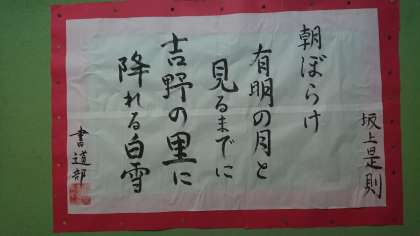 坂上是則
朝ぼらけ
有明の月と
見るまでに
吉野の里に
降れる白雪
書道部